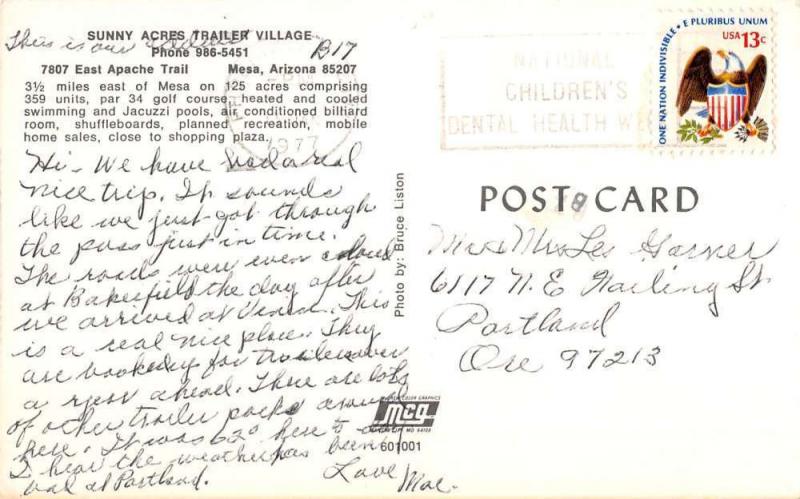 SUNNY ACRES TRAILER VILLAGE
This is our
B17
Phone 986-5451
7807 East Apache Trail Mesa, Arizona 85207
3½ miles east of Mesa on 125 acres comprising
359 units, par 34 golf course, heated and cooled
swimming and Jacuzzi pools, air conditioned billiard
room, shuffleboards, planned recreation, mobile
home sales, close to shopping plaza.
1977
Hi - We have had a real
nice trip. It sounds
like we just got through
the pass just in time.
The roads were even closed
at Bakersfield the day after
we arrived at . This
is a real nice place. They
are booked up for trailers over
a year ahead. There are lots
of other trailer parks around
here. It was 62° here &
I hear the weather has been
bad at Portland.
Love
Mae.
Photo by: Bruce Liston
COLOR GRAPHICS
mcg
601001
NATIONAL
CHILDREN'S
DENTAL HEALTH WE
ONE NATION INDIVISIBLE • E PLURIBUS UNUM
USA 13c
POST CARD
Mr & Mrs Les Garner
6117 N. E Nailing St
Portland
Ore 97213